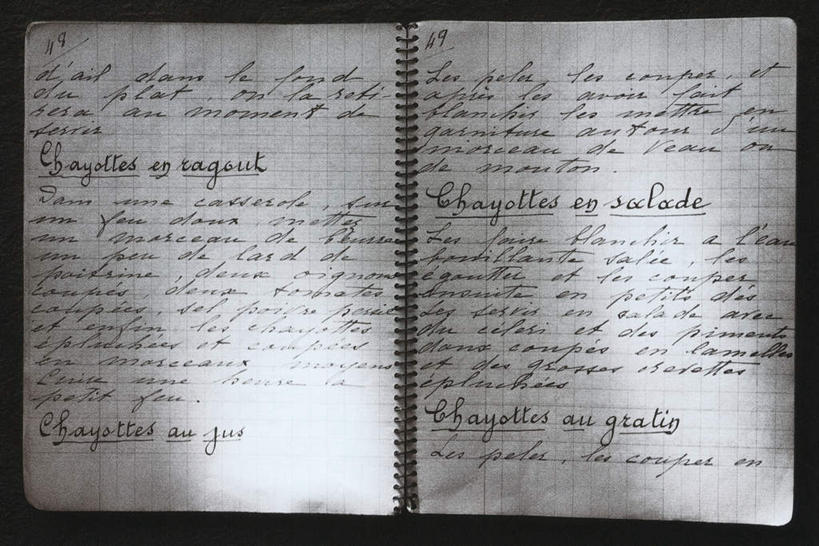 48
d'ail dans le fond
du plat on la reti-
rera au moment de
servir
Chayottes en ragout
Dans une casserole, sur
un feu doux mettez
un morceau de beurre
un peu de lard de
poitrine, deux oignons
coupés, deux tomates
coupées, sel poivre persil
et enfin les chayottes
épluchées et coupées
en morceaux moyens
Cuire une heure à
petit feu.
Chayottes au jus
49
Les peler, les couper, et
après les avoir fait
blanchir les mettre en
garniture autour d'un
morceau de veau ou
de mouton.
Chayottes en salade
Les faire blanchir a l'eau
bouillante salée, les
égoutter et les couper
ensuite en petits dés
Les servir en salade avec
du céleri et des piments
doux coupés en lamelles
et des grosses crevettes
épluchées
Chayottes au gratin
Les peler, les couper en